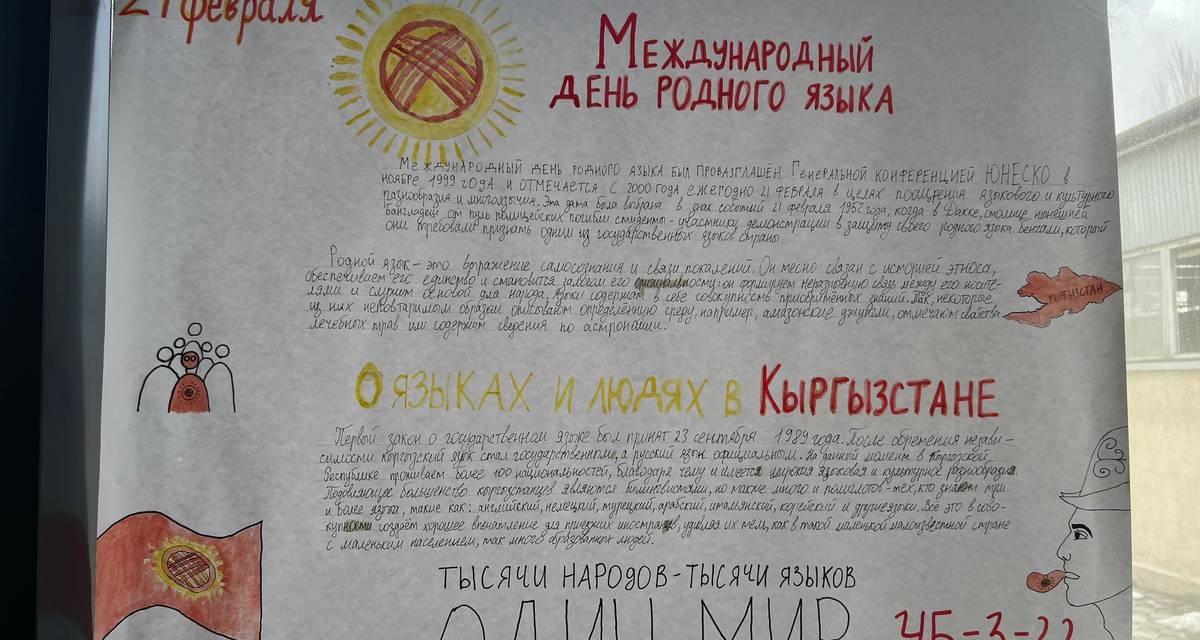 21 февраля
Международный
день родного языка
Международный день родного языка был провазглашён Генеральной конференцией ЮНЕСКО в
ноябре 1999 года и отмечается с 2000 года ежегодно 21 февраля в целях поощрения языкового и культурного
разнообразия и многоязычия. Эта дата была выбрана в знак событий 21 февраля 1952 года, когда в Дакке, столице нынешней
Бангладеш от пуль полицейских погибли студенты - участники демонстрации в защиту своего родного языка бенгали, который
они требовали признать одним из государственных языков страны.
Родной язык - это выражение самосознания и связи поколений. Он тесно связан с историей этноса,
обеспечивает его единство и становится залогом его : он формирует неразрывную связь между его носите-
лями и служит основой для народа. Языки содержат в себе совокупность приобретённых знаний. Так, некоторые
из них неповторимым образом описывают определённую среду, например, амазонские джунгли, отмечают свойства
лечебных трав или содержат сведения по астрономии.
Кыргызстан
О языках и людях в Кыргызстане
Первый закон о государственном языке был принят 23 сентября 1989 года. После обретения незави-
симости кыргызский язык стал государственным, а русский язык официальным. На данный момент в Кыргызской
Республике проживает более 100 национальностей, благодаря чему и имеется широкая языковая и культурное разнообразия.
Подовляющее большенство кыргызстанцев являются билингвистами, но также много и полиглотов - тех, кто знают три
и более языка, такие как: английский, немецкий, турецкий, арабский, итальянский, корейский и другие языки. Всё это в сово-
купности создаёт хорошее впечатление для приезжих иностранцев, удивляя их тем, как в такой маленькой малоизвестной стране
с маленьким населением, так много образованных людей.
Тысячи народов - тысячи языков
Один мир
ЧБ-3-22